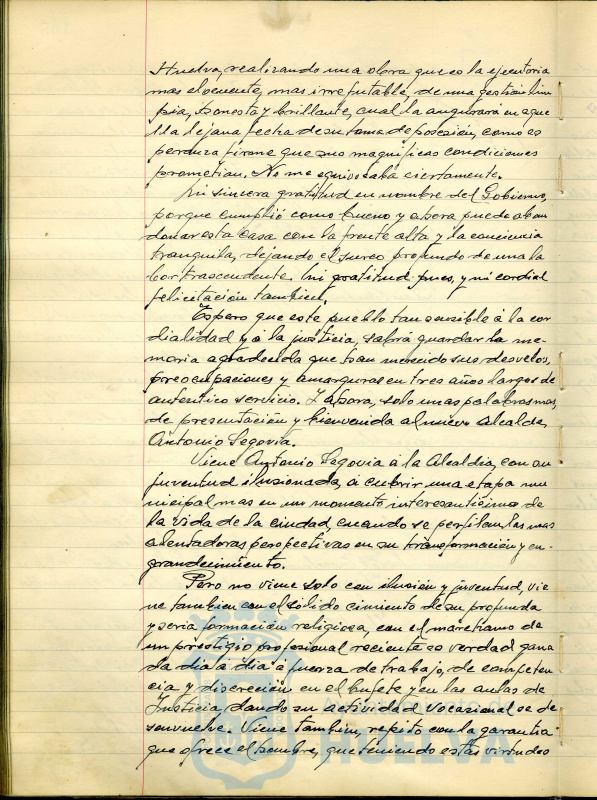 Huelva, realizando una obra que es la ejecutoria
mas elocuente, mas irrefutable, de una gestión lim
pia, honesta y brillante, cual la auguraba en aque
lla lejana fecha de su toma de posesión, como es
peranza firme que sus magnificas condiciones
prometian. No me equivocaba ciertamente.
Mi sincera gratitud en nombre del Gobierno,
porque cumplió como bueno y ahora puede aban
donar esta casa con la frente alta y la conciencia
tranquila, dejando el surco profundo de una la
bor trascendente. Mi gratitud pues, y mi cordial
felicitación tambien.
Espero que este pueblo tan sensible á la cor
dialidad y á la justicia, sabrá guardar la me-
moria agradecida que han merecido sus desvelos,
preocupaciones y amarguras en tres años largos de
autentico servicio. Y ahora, solo unas palabras mas,
de presentación y bienvenida al nuevo alcalde,
Antonio Segovia.
Viene Antonio Segovia á la Alcaldia, con su
juventud ilusionada, á cubrir una etapa mu
nicipal mas en un momento interesantisimo de
la vida de la ciudad, cuando se perfilan las mas
alentadoras perspectivas en su transformación y en-
grandecimiento.
Pero no viene solo con ilusión y juventud, vie
ne tambien con el sólido cimiento de su profunda
y seria formación religiosa, con el
un prestigio profesional reciente es verdad gana
do dia á dia á fuerza de trabajo, de competen
cia y discreción en el bufete y en las aulas de
Justicia, donde su actividad vocacional se de
senvuelve. Viene tambien, repito con la garantia
que ofrece el hombre, que teniendo estas virtudes
HUELVA